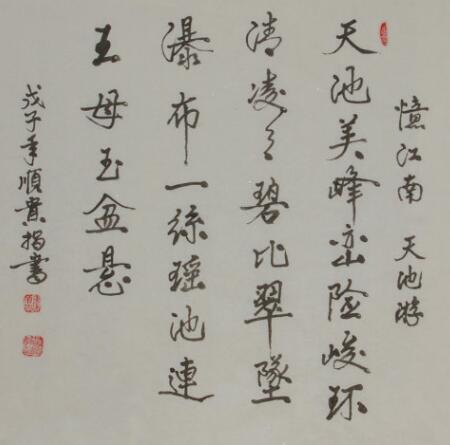 憶江南 天池游
天池美峰峦险峻环
清凌々碧比翠墜
瀑布一絲瑶池連
王母玉盆悬
戊子年順貴書